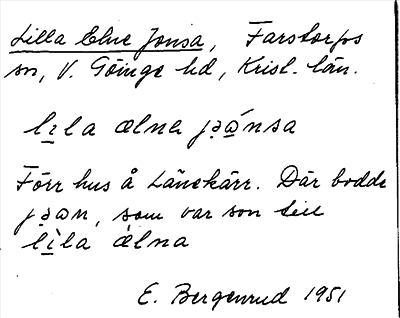 Lilla Elne Jonsa, Farstorps
sn, V. Göinge hd, Krist. län.
lı̱la ælna jə̱a̱´nsa
Förr hus å Länekärr. Där bodde
jə̱an, som var son till
lı̱̀la ǽlna
E. Bergenrud 1951